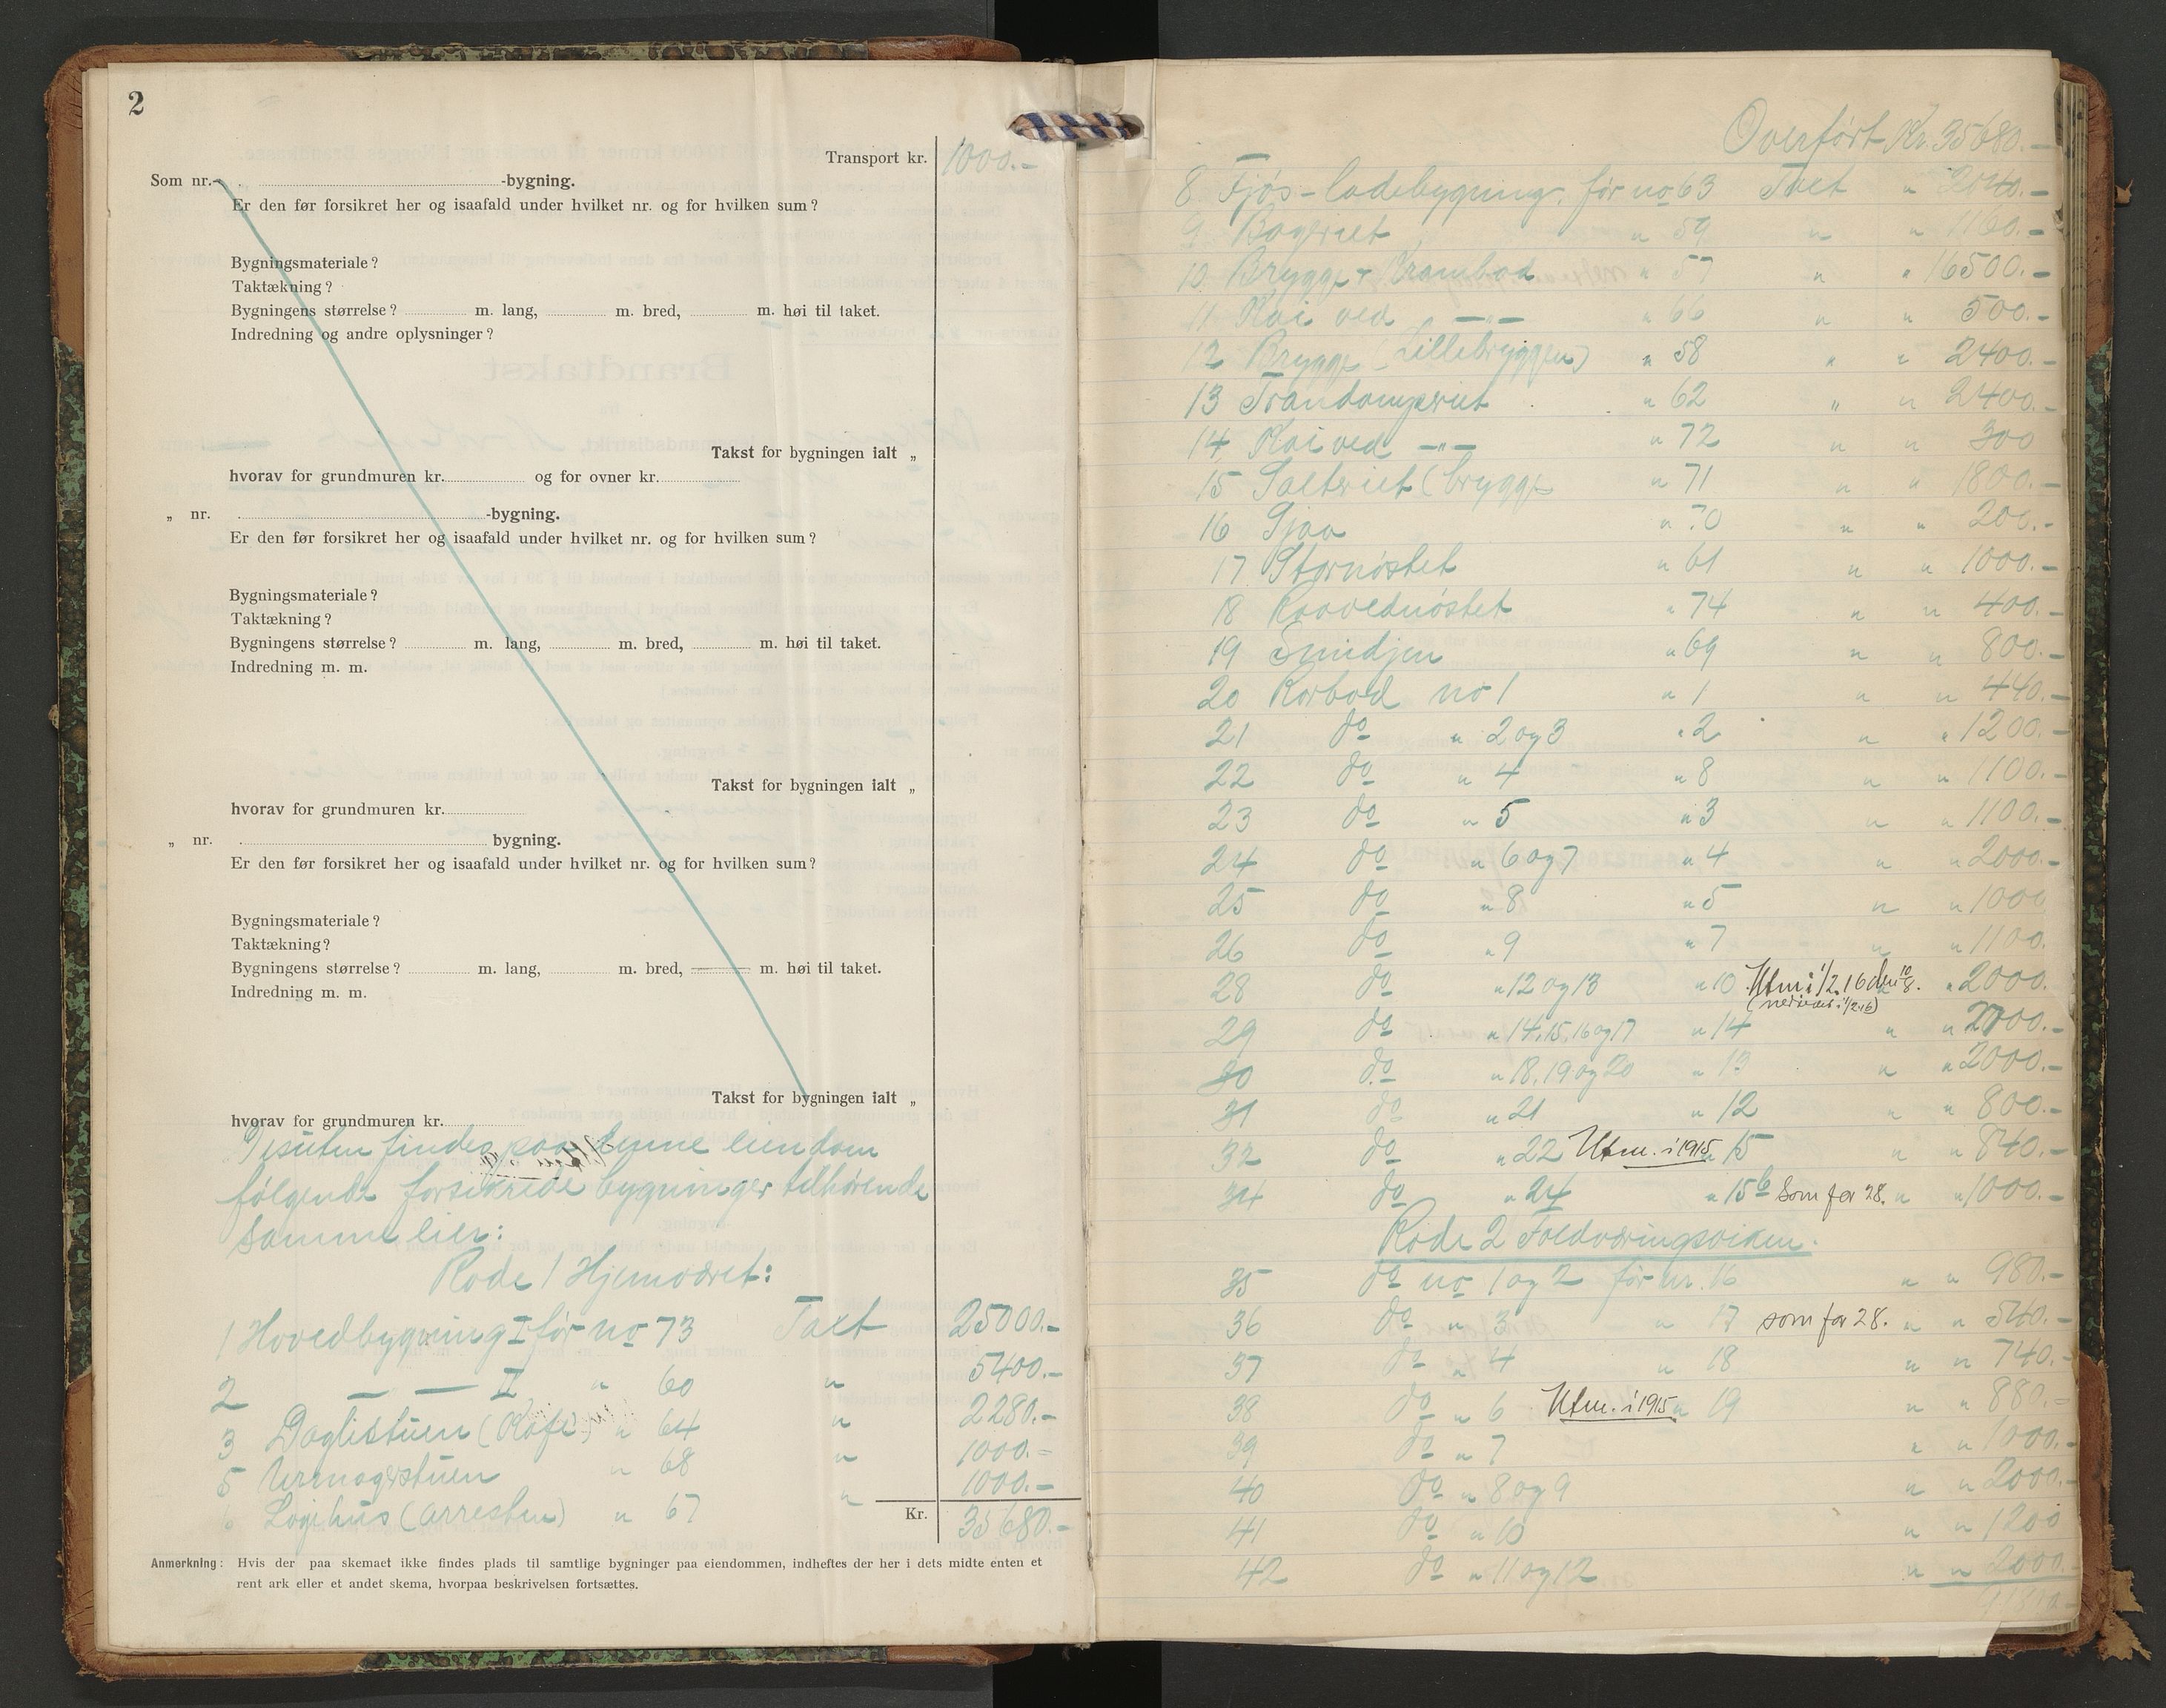 2
Transport kr. 1000.-
Som nr. -bygning.
Er den før forsikret her og isaafald under hvilket nr. og for hvilken sum?
Bygningsmateriale?
Taktækning?
Bygningens størrelse? m. lang, m. bred, m. høi til taket.
Indredning og andre oplysninger?
Takst for bygningen ialt „
hvorav for grundmuren kr. og for ovner kr.
„ nr. -bygning.
Er den før forsikret her og isaafald under hvilket nr. og for hvilken sum?
Bygningsmateriale?
Taktækning?
Bygningens størrelse? m. lang, m. bred, m. høi til taket.
Indredning m. m.
Takst for bygningen ialt „
hvorav for grundmuren kr.
„ nr. bygning.
Er den før forsikret her og isaafald under hvilket nr. og for hvilken sum?
Bygningsmateriale?
Taktækning?
Bygningens størrelse? m. lang, m. bred, m. høi til taket.
Indredning m. m.
Takst for bygningen ialt „
hvorav for grundmuren kr.
Desuten findes paa denne eiendom
følgende forsikrede bygninger tilhørende
samme eier:
Rode 1 Hjemværet:
1 Hovedbygning I før no 73 Taxt 25000.-
2 — — II " 60 " 5400.-
3 Daglistuen (Kafe) " 64 " 2280.-
5 " 68 " 1000.-
6 Logihus (arresten) " 67 " 1000.-
Kr. 35680.-
Anmerkning: Hvis der paa skemaet ikke findes plads til samtlige bygninger paa eiendommen, indheftes der her i dets midte enten et
rent ark eller et andet skema, hvorpaa beskrivelsen fortsættes.
Overført Kr. 35680.-
8 Fjøs-ladebygning. før no 63 Taxt " 2040.-
9 Bageriet " 59 " " 1160.-
10 Brygge + Krambod " 57 " " 16500.-
11 Kai ved —"— " 66 " " 500.-
12 Brygge (Lillebryggen) " 58 " " 2400.-
13 Trandamperiet " 62 " " 2400.-
14 Kai ved —"— " 72 " " 300
15 Salteriet (brygge " 71 " " 1800.-
16 Sjaa " 70 " " 200.-
17 Stornøstet " 61 " " 1000.-
18 Raavednøstet " 74 " " 400.-
19 Smidjen " 69 " " 800.-
20 Rorbod no 1 " 1 " " 440.-
21 do " 2 og 3 " 2 " " 1200.-
22 do " 4 " 8 " " 1100.-
23 do " 5 " 3 " " 1100.-
24 do " 6 og 7 " 4 " " 2000.-
25 do " 8 " 5 " " 1000
26 do " 9 " 7 " " 1100.
28 do " 12 og 13 " 10 Utm i 1/2 16 den 10/8. " 2000.
29 do " 14, 15, 16 og 17 " 14 " " 2700.-
30 do " 18, 19 og 20 " 13 " " 2000.-
31 do " 21 " 12 " " 800.-
32 do " 22 Utm. i 1915 " 15 " " 840.-
34 do " 24 " 15b Som for 28. " " 1000.-
Rode 2 Foldværingsviken.
35 do no 1 og 2 før nr. 16 " " 980.-
36 do " 3 " 17 som for 28. " " 540.-
37 do " 4 " 18 " " 740.-
38 do " 6 Utm. i 1915 " 19 " " 880.-
39 do " 7 " " 1000.-
40 do " 8 og 9 " " 2000.-
41 do " 10 " " 1200
42 do " 11 og 12 " " 2000.